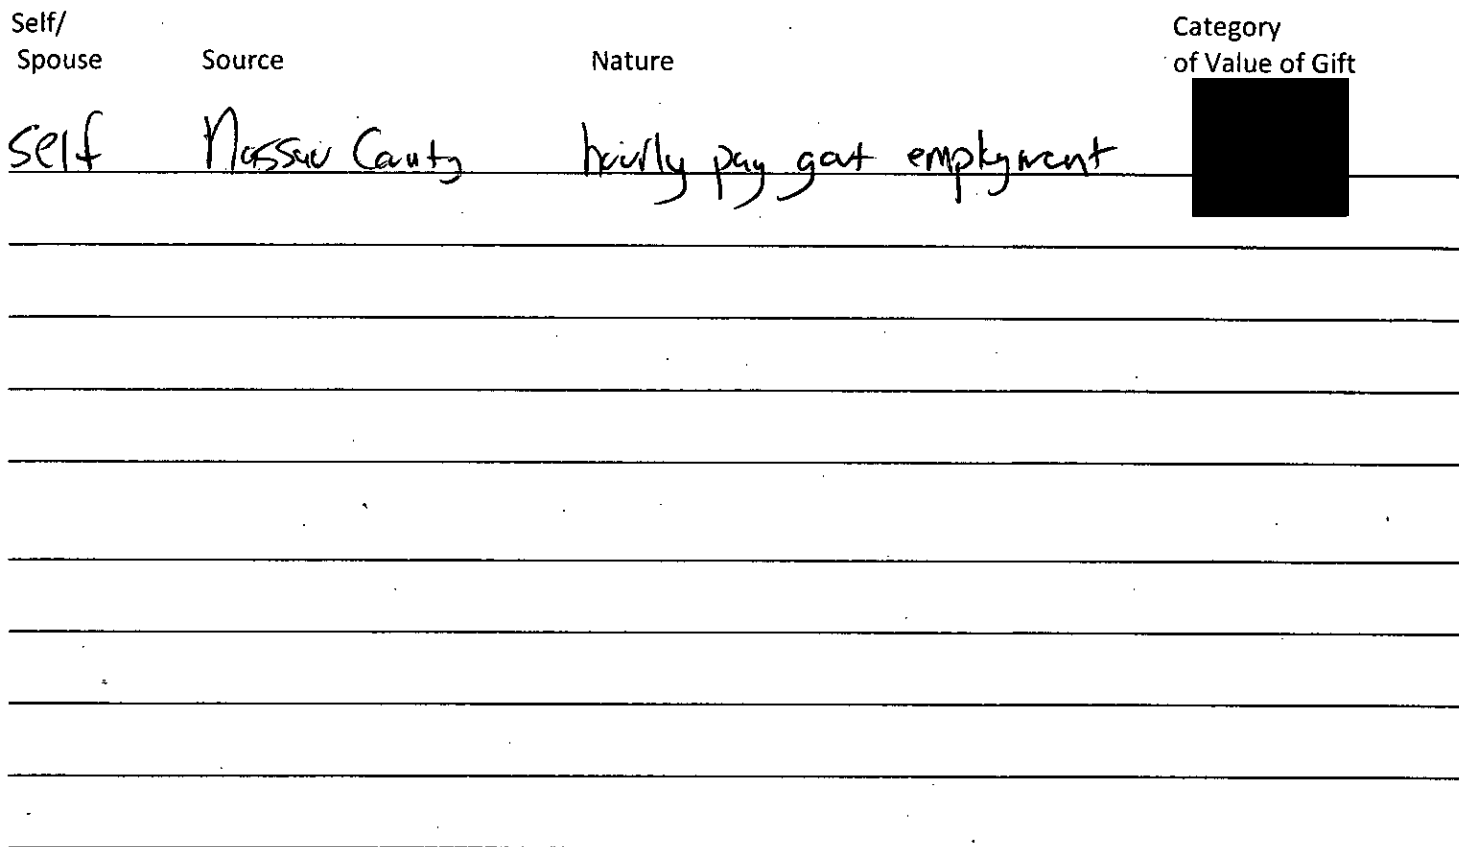 Self/ Category
Spouse Source Nature of Value of Gift
Self Nassau County hourly pay govt employment